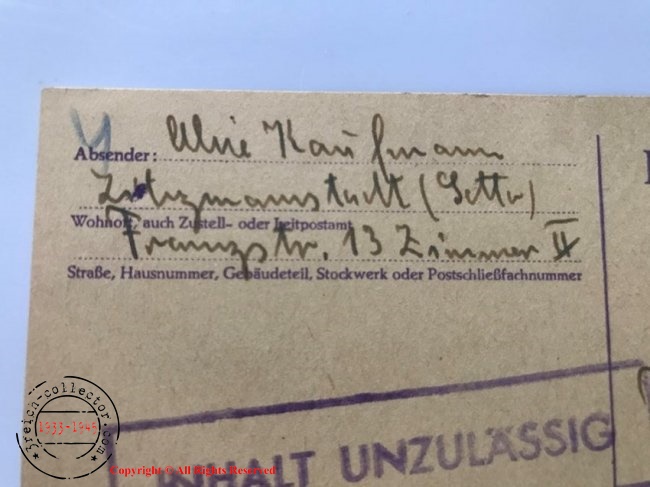 Absender: Kaufmann
Litzmannstadt (Getto)
Wohnort, auch Zustell- oder Leitpostamt
Franzstr. 13 Zimmer
Straße, Hausnummer, Gebäudeteil, Stockwerk oder Postschließfachnummer
INHALT UNZULÄSSIG
3reich-collector.com
1933-1945
Copyright © All Rights Reserved